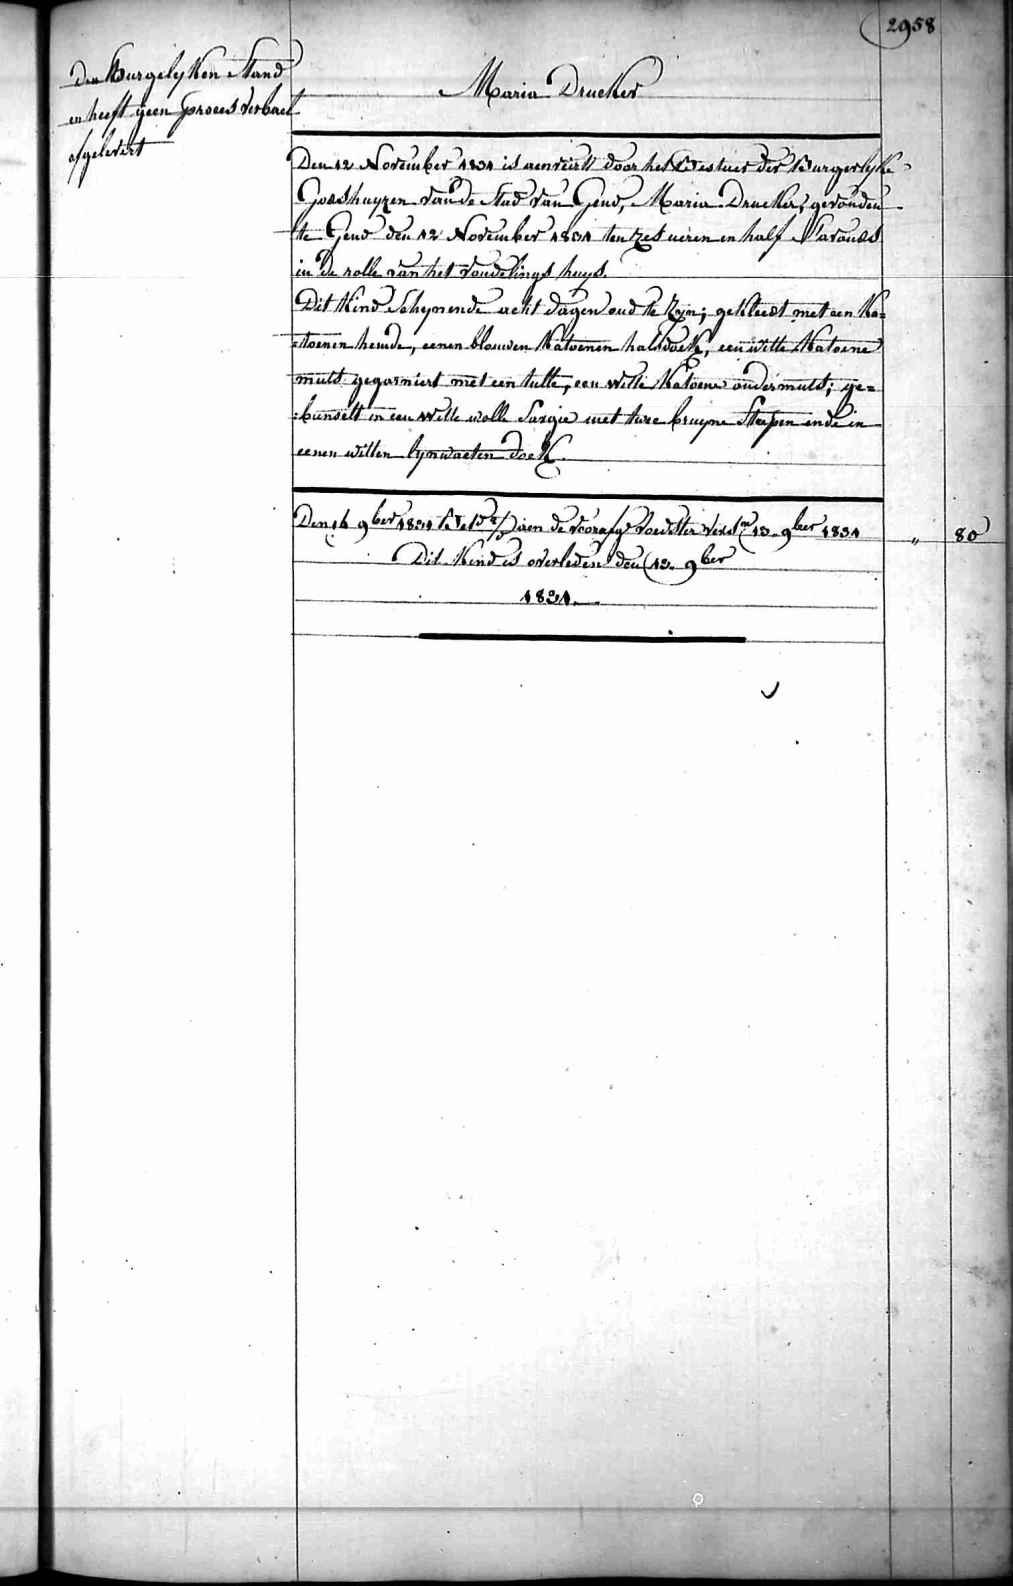 2958
Den Burgelyken Stand
en heeft geen proces verbael
afgelevert
Maria Drucker
Den 12 November 1831 is aenveirt door het Bestuer der Burgerlyke
Godshuyzen van de Stad van Gend, Maria Drucker, gevonden
te Gend den 12 November 1831 ten zes uiren en half S'avonds
in de rolle van het vondelings huys.
Dit Kind Schynende acht dagen oud te zyn; gekleedt met een Ka=
=toenen hemde, eenen blouwen Katoenen halsdoek, een witte Katoene
muts gegarniert met een tulle, een witte Katoene ondermuts; ge=
=bunselt in een witte wolle Sargie met twee bruyne Strepen ende in
eenen witten lynwaeten doek.
Den 16 9ber 1831 aen de voedster 13 9ber 1831 " 80
Dit Kind is overleden den 13 9ber
1831.